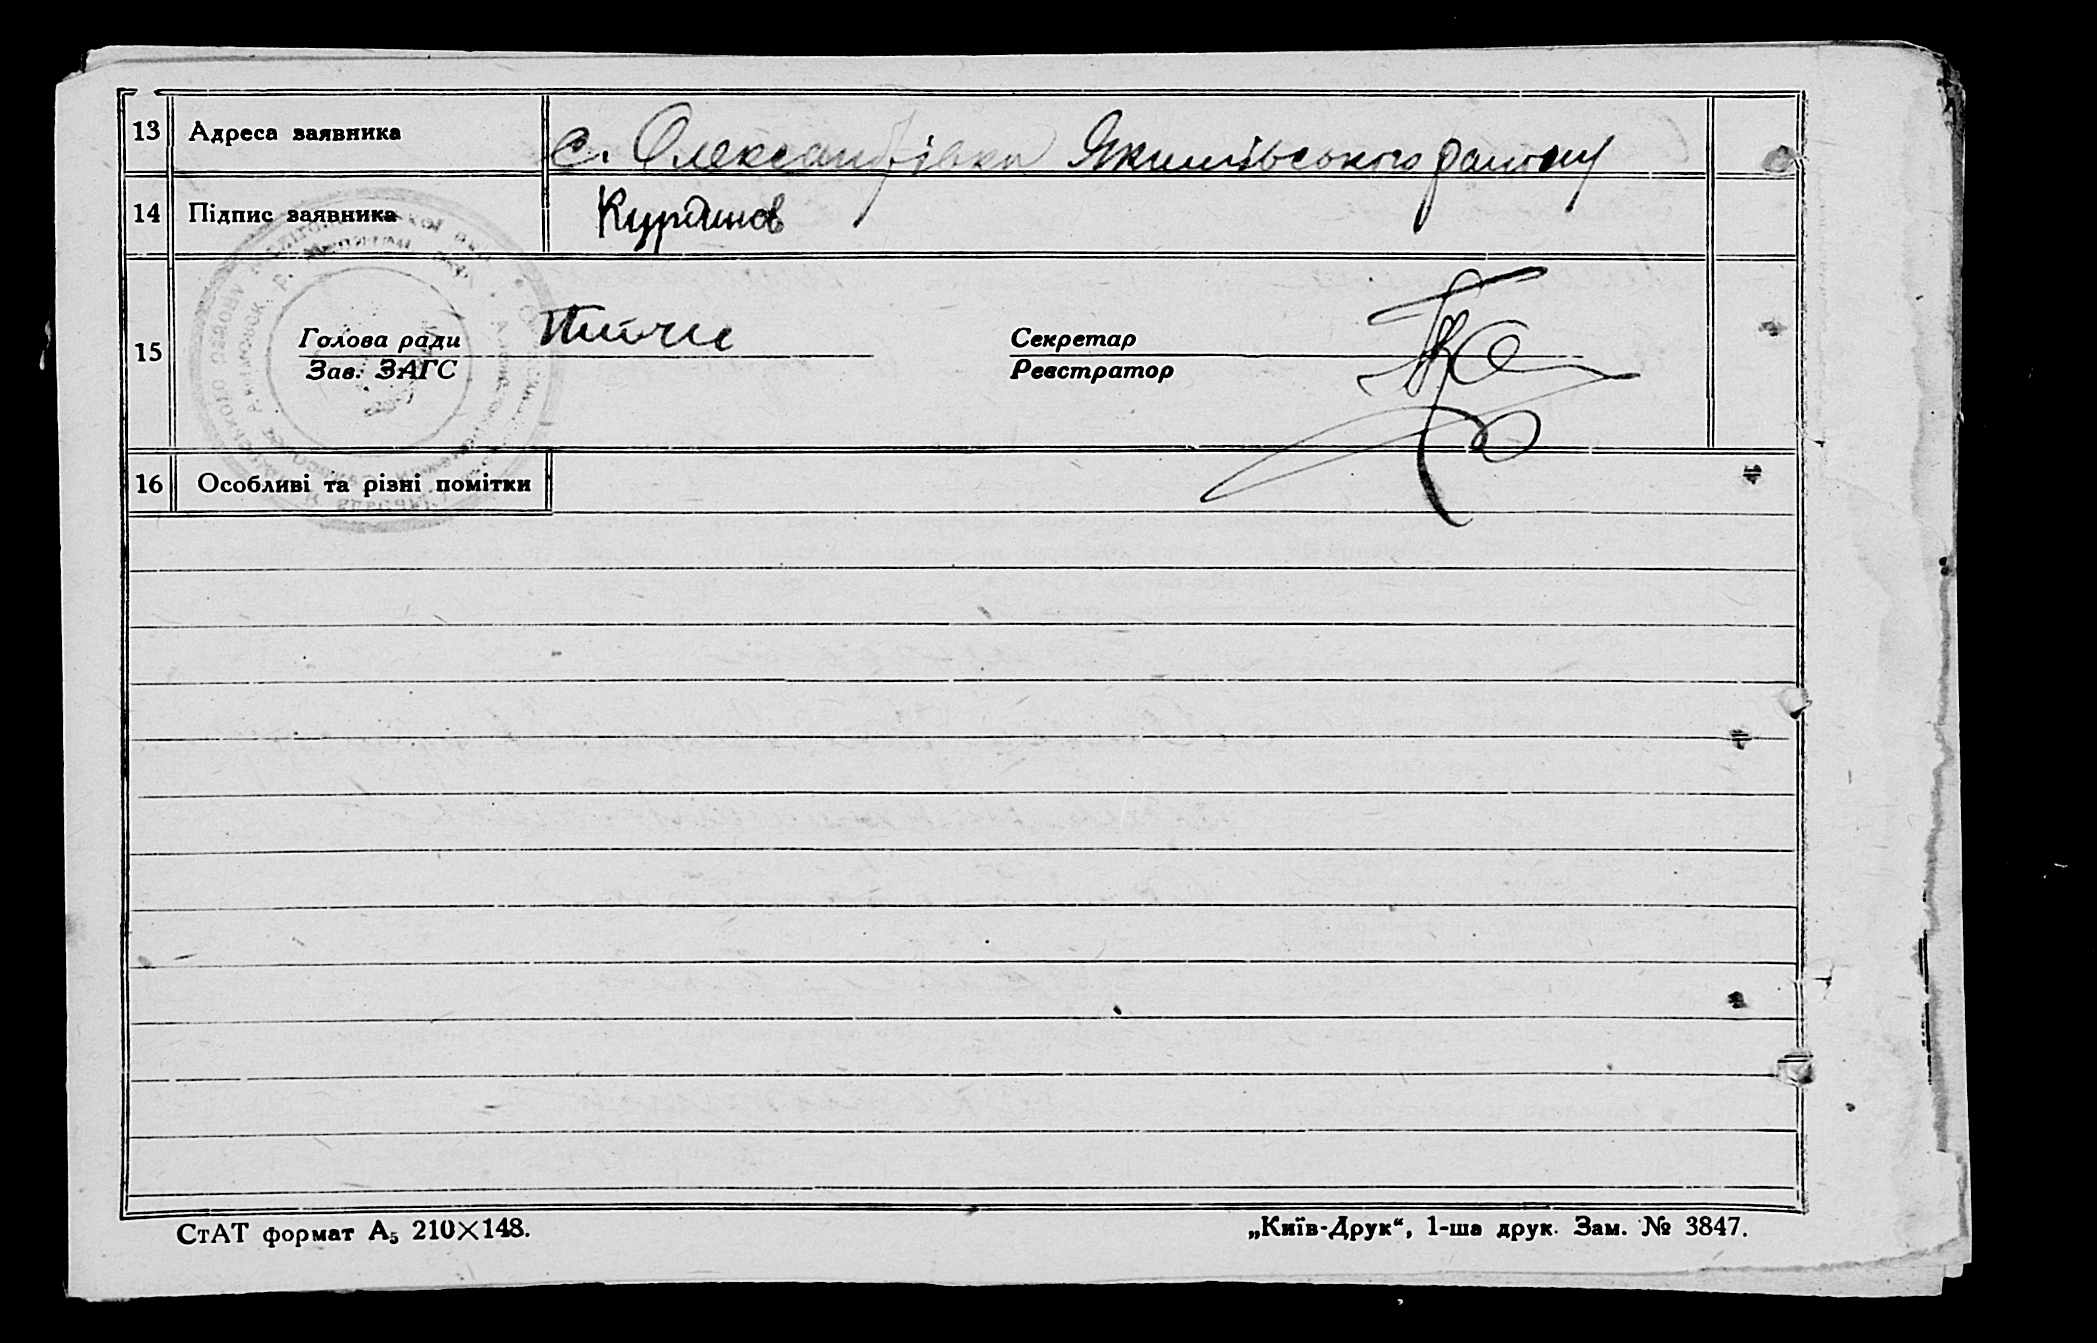 13 Адреса заявника с. Олександрівка Якимівського району
14 Підпис заявника Курдинов
15 Голова ради
Зав. ЗАГС
Секретар
Реєстратор
16 Особливі та різні помітки
СтАТ формат А₅ 210×148.
„Київ-Друк“, 1-ша друк. Зам. № 3847.